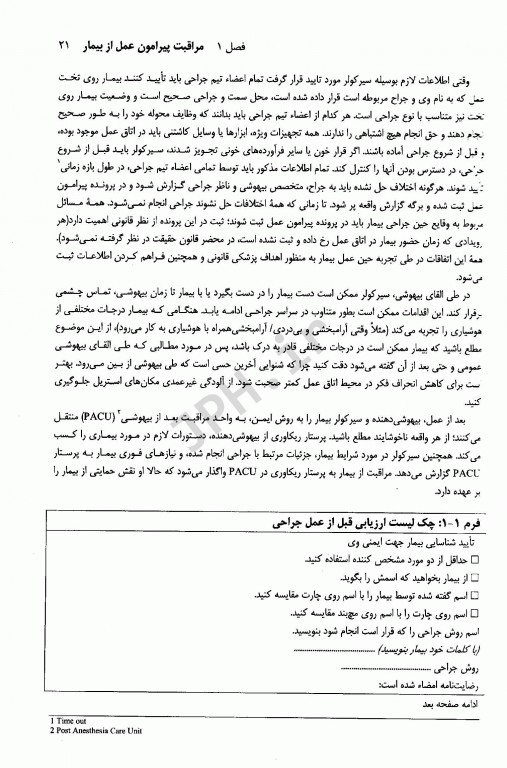 فصل ۱ مراقبت پیرامون عمل از بیمار ۲۱
وقتی اطلاعات لازم بوسیله سیرکولر مورد تایید قرار گرفت تمام اعضاء تیم جراحی باید تأیید کنند بیمار روی تخت
عمل که به نام وی و جراح مربوطه است قرار داده شده است، محل سمت و جراحی صحیح است و وضعیت بیمار روی
تخت نیز متناسب با نوع جراحی است. هر کدام از اعضاء تیم جراحی باید بدانند که وظایف محوله خود را به طور صحیح
انجام دهند و حق انجام هیچ اشتباهی را ندارند. همه تجهیزات ویژه، ابزارها یا وسایل کاشتنی باید در اتاق عمل موجود بوده،
و قبل از شروع جراحی آماده باشند. اگر قرار خون یا سایر فرآورده‌های خونی تجویز شدند، سیرکولر باید قبل از شروع
جراحی، در دسترس بودن آنها را کنترل کند. تمام اطلاعات مذکور باید توسط تمامی اعضاء تیم جراحی، در طول بازه زمانی۱
تأیید شوند. هرگونه اختلاف حل نشده باید به جراح، متخصص بیهوشی و ناظر جراحی گزارش شود و در پرونده پیرامون
عمل ثبت شده و برگه گزارش واقعه پر شود. تا زمانی که همۀ اختلافات حل نشوند جراحی انجام نمی‌شود. همۀ مسائل
مربوط به وقایع حین جراحی بیمار باید در پرونده پیرامون عمل ثبت شوند؛ ثبت در این پرونده از نظر قانونی اهمیت دارد(هر
رویدادی که زمان حضور بیمار در اتاق عمل رخ داده و ثبت نشده است، در محضر قانون حقیقت در نظر گرفته نمی‌شود).
همۀ این اتفاقات در طی تجربه حین عمل بیمار به منظور اهداف پزشکی قانونی و همچنین فراهم کردن اطلاعات ثبت
می‌شود.
در طی القای بیهوشی، سیرکولر ممکن است دست بیمار را در دست بگیرد یا با بیمار تا زمان بیهوشی، تماس چشمی
برقرار کند. این اقدامات ممکن است بطور متناوب در سراسر جراحی ادامه یابد. هنگامی که بیمار درجات مختلفی از
هوشیاری را تجربه می‌کند (مثلاً وقتی آرامبخشی و بی‌دردی/ آرامبخشی‌همراه با هوشیاری به کار می‌رود)، از این موضوع
مطلع باشید که بیمار ممکن است در درجات مختلفی قادر به درک باشد، پس در مورد مطالبی که طی القای بیهوشی
عمومی و حتی بعد از آن گفته می‌شود دقت کنید چرا که شنوایی آخرین حسی است که طی بیهوشی از بین می‌رود. بهتر
است برای کاهش انحراف فکر در محیط اتاق عمل کمتر صحبت شود. از آلودگی غیرعمدی مکان‌های استریل جلوگیری
کنید.
بعد از عمل، بیهوشی‌دهنده و سیرکولر بیمار را به روش ایمن، به واحد مراقبت بعد از بیهوشی۲ (PACU) منتقل
می‌کنند؛ از هر واقعه ناخوشایند مطلع باشید. پرستار ریکاوری از بیهوشی‌دهنده، دستورات لازم در مورد بیماری را کسب
می‌کند. همچنین سیرکولر در مورد شرایط بیمار، جزئیات مرتبط با جراحی انجام شده، و نیازهای فوری بیمار به پرستار
PACU گزارش می‌دهد. مراقبت از بیمار به پرستار ریکاوری در PACU واگذار می‌شود که حالا او نقش حمایتی از بیمار را
بر عهده دارد.
فرم ۱-۱: چک لیست ارزیابی قبل از عمل جراحی
تأیید شناسایی بیمار جهت ایمنی وی
□ حداقل از دو مورد مشخص کننده استفاده کنید.
□ از بیمار بخواهید که اسمش را بگوید.
□ اسم گفته شده توسط بیمار را با اسم روی چارت مقایسه کنید.
□ اسم روی چارت را با اسم روی مچ‌بند مقایسه کنید.
اسم روش جراحی را که قرار است انجام شود بنویسید.
(با کلمات خود بیمار بنویسید) ........................................
روش جراحی ........................................
رضایت‌نامه امضاء شده است:
ادامه صفحه بعد
1 Time out
2 Post Anesthesia Care Unit